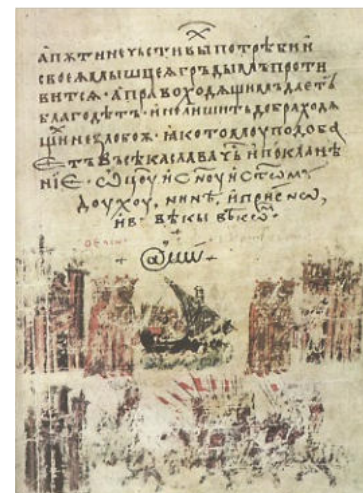 х
а пѫти нечьстивы потрѣбии
своеѧ мышцеѧ грьдымь проти
витсѧ · а правоходѧщимь даеть
благодѣть · и не лишить добра ходѧ
щи незлобоѫ · ꙗко томоу подоба
еть въсѣка слава чь и поклане
нїе · ѡцоу и сноу и стомꙋ
доухоу, ннѣ, и присно,
и въ вѣкы вѣкѡ
аминь